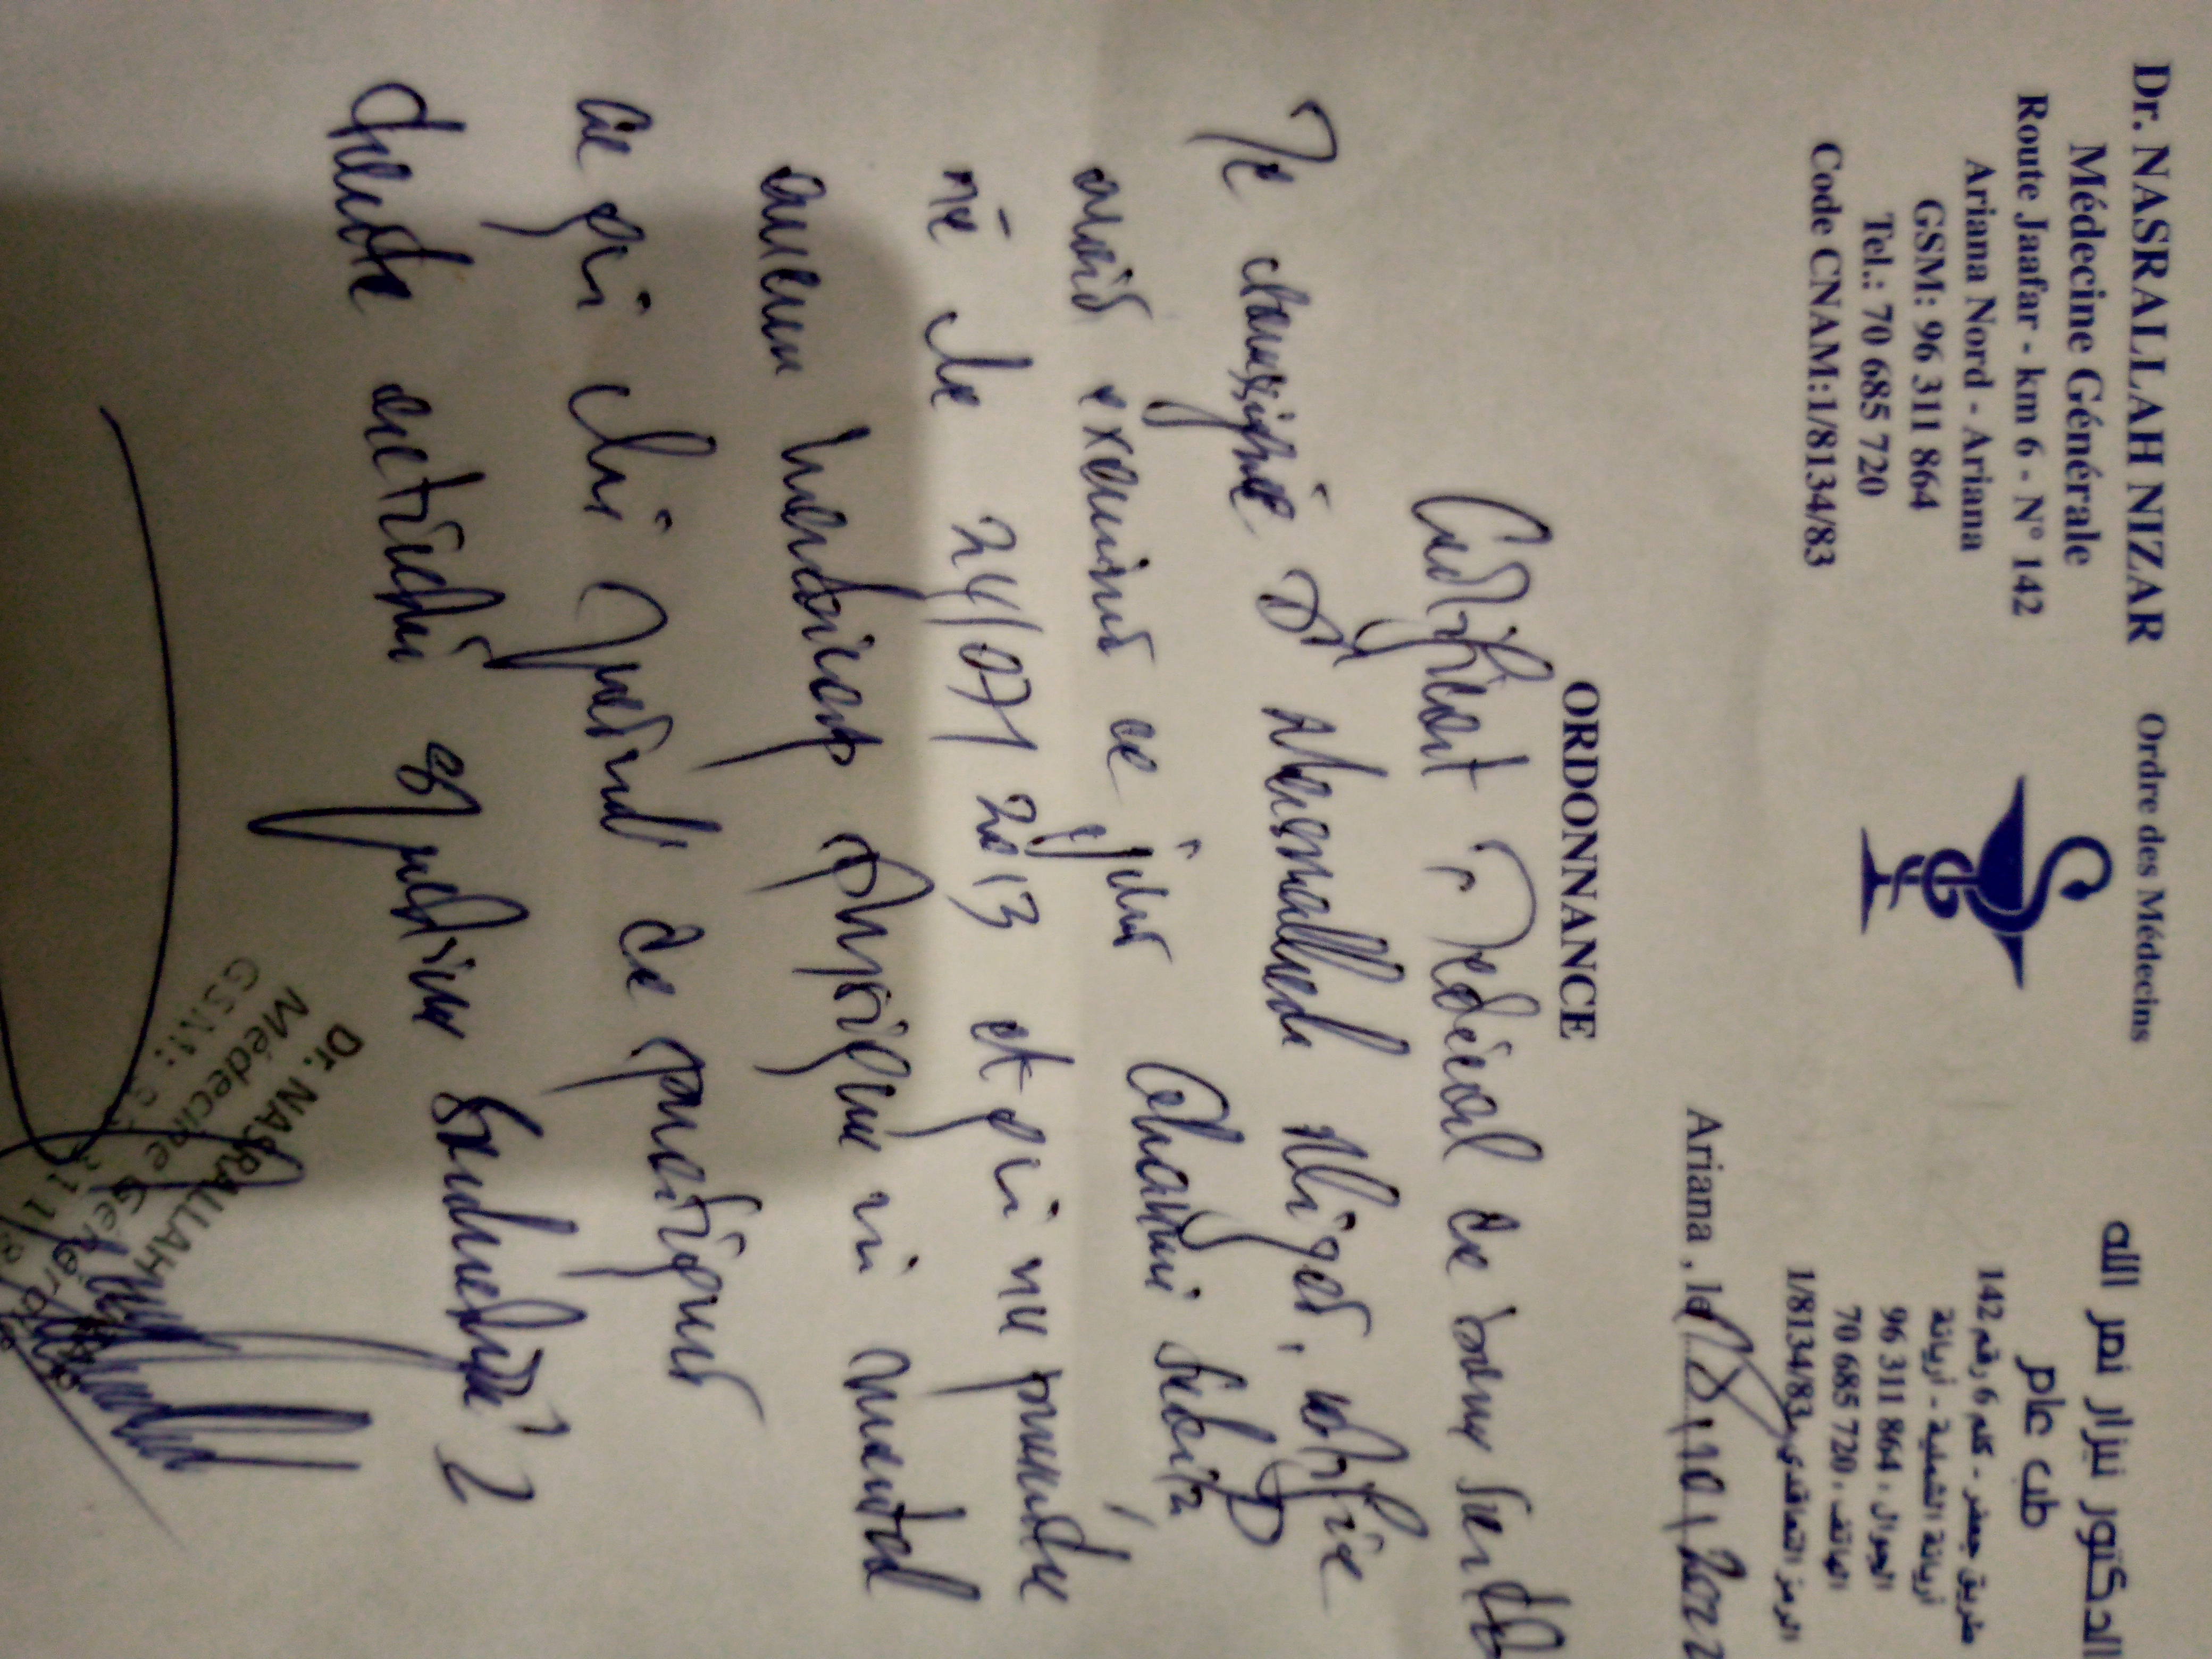 Dr. NASRALLAH NIZAR
Médecine Générale
Route Jaafar - km 6 - N° 142
Ariana Nord - Ariana
GSM: 96 311 864
Tel.: 70 685 720
Code CNAM:1/8134/83
Ordre des Médecins
الدكتور نيزار نصر الله
طب عام
طريق جعفر - كلم 6 رقم 142
أريانة الشمالية - أريانة
الجوال : 96 311 864
الهاتف : 70 685 720
الرمز التعاقدي 1/8134/83
Ariana, le 2022
ORDONNANCE
Certificat Médical de bonne santé
Je soussigné Dr certifie
avoir examiner ce jour
né le 24/07/2013 et qui ne présente
aucun handicap physique ni mental
ce qui lui permet de pratiquer
toute activité
Dr. NASRALLAH
Médecine Générale
GSM: